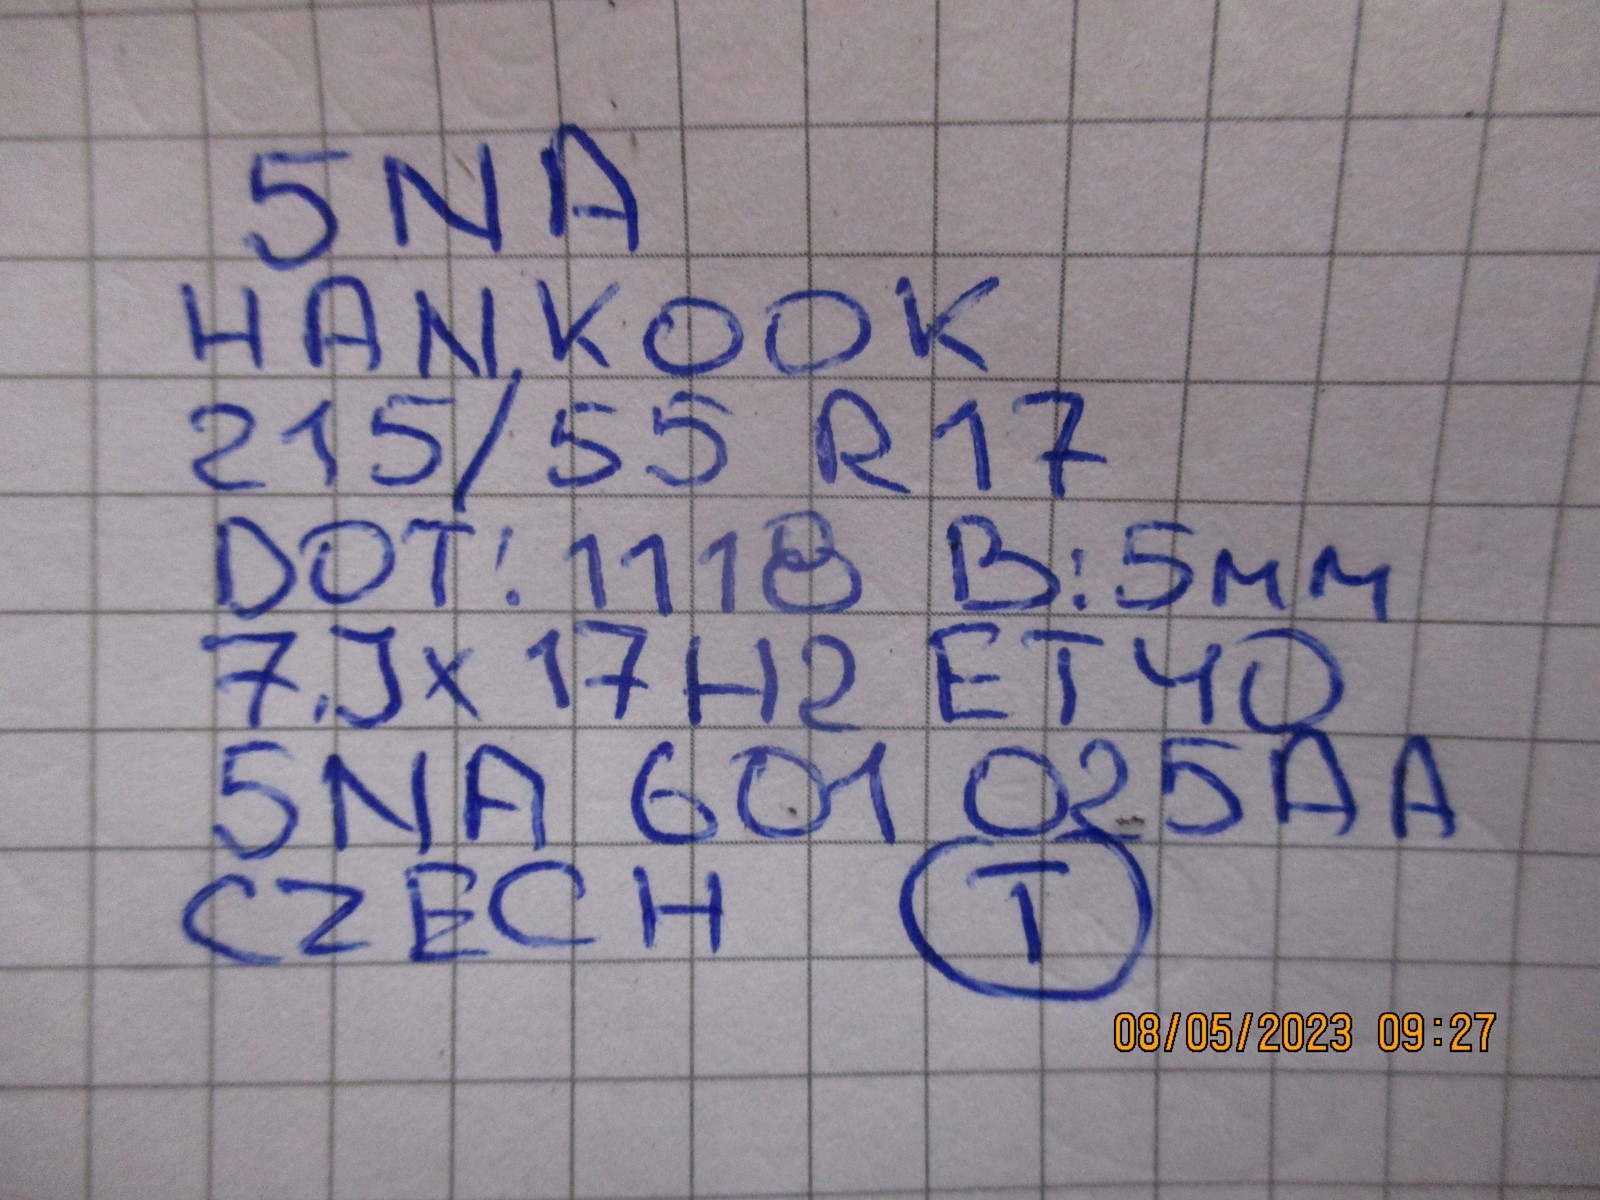 5NA
HANKOOK
215/55 R17
DOT: 1118 B:5мм
7.Jx17H2 ET40
5NA 601 025AA
CZECH T
08/05/2023 09:27